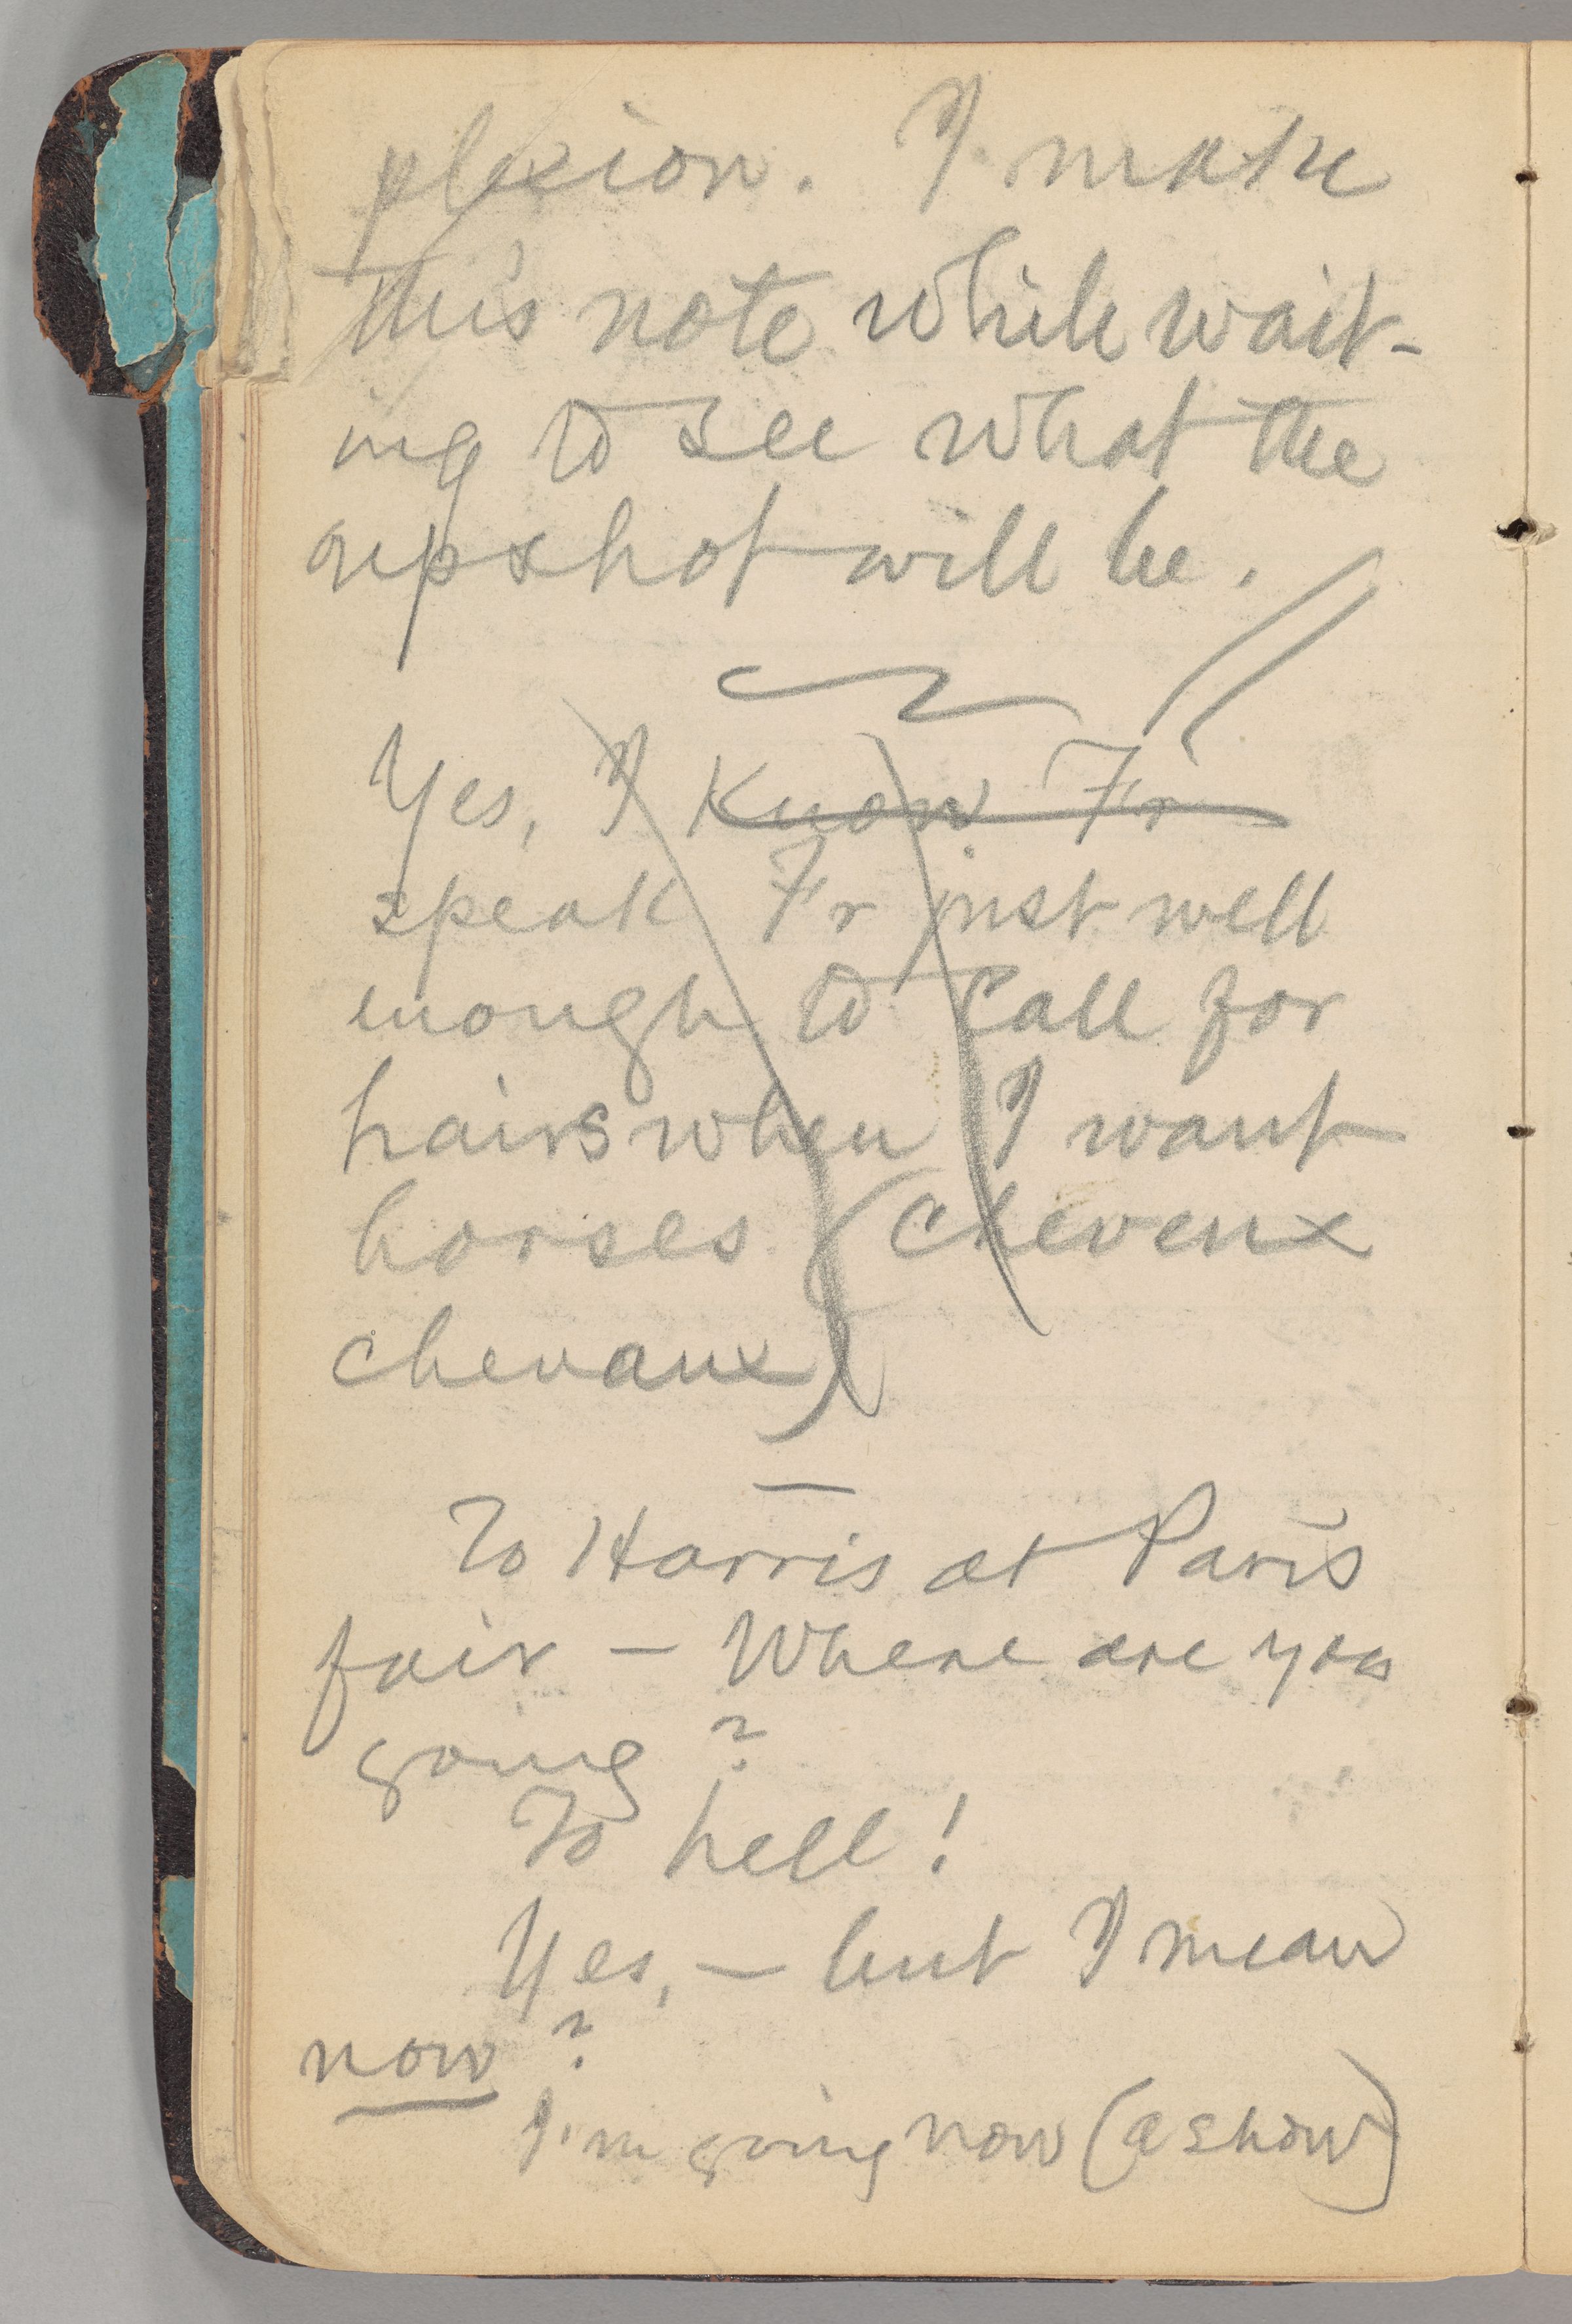 plexion. I make
this note while wait-
ing to see what the
upshot will be.
Yes, I know Fr
speak Fr just well
enough to call for
hairs when I want
horses. (cheveux
chevaux)
To Harris at Paris
fair — Where are you
going?
To hell!
Yes, — but I mean
now?
I'm going now (a show)